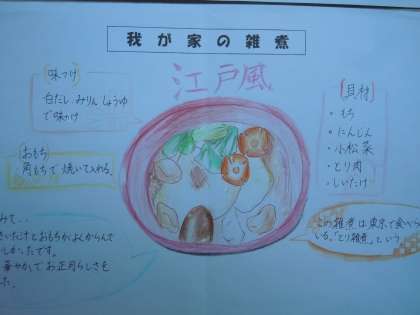 我が家の雑煮
江戸風
味つけ
白だし みりん しょうゆ
で味つけ
おもち
角もちで焼いて入れる。
具材
・もち
・にんじん
・小松菜
・とり肉
・しいたけ
みて・・
いたけとおもちがよくからんで
しかったです。
華やかでお正月らしさを
た。
この雑煮は東京で食べら
いる。「とり雑煮」という